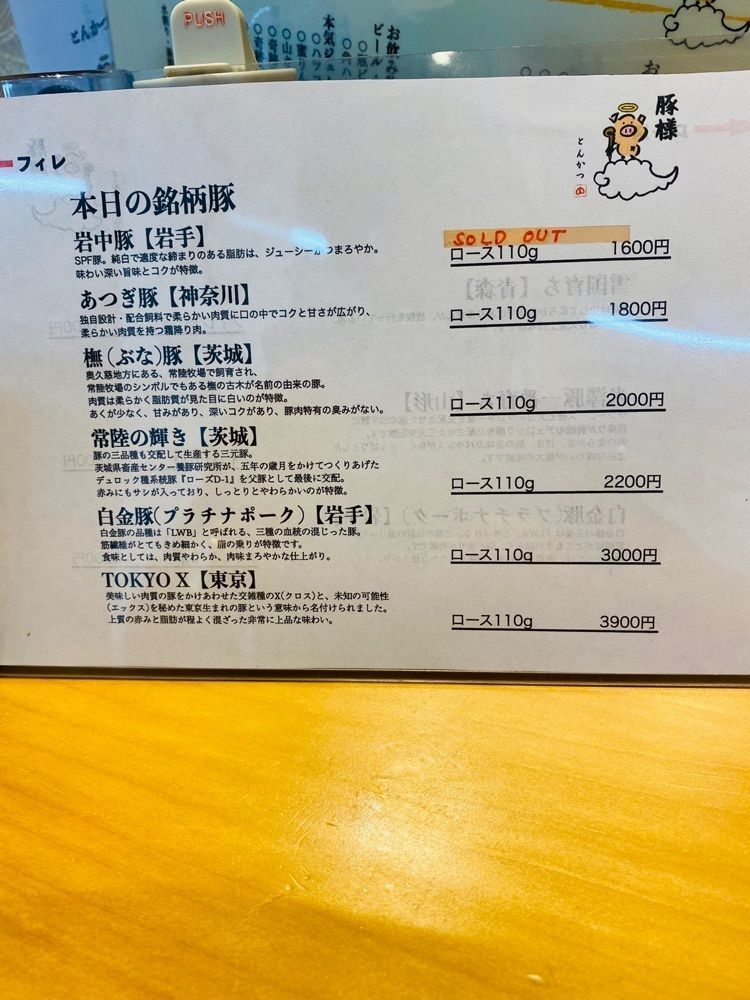 PUSH
とんかつ
お飲み
ビール
本気ジュ
豚様
とんかつ
フィレ
本日の銘柄豚
岩中豚【岩手】
SPF豚。純白で適度な締まりのある脂肪は、ジューシーかつまろやか。
味わい深い旨味とコクが特徴。
SOLD OUT
ロース110g 1600円
あつぎ豚【神奈川】
独自設計・配合飼料で柔らかい肉質に口の中でコクと甘さが広がり、
柔らかい肉質を持つ霜降り肉。
ロース110g 1800円
橅(ぶな)豚【茨城】
奥久慈地方にある、常陸牧場で飼育され、
常陸牧場のシンボルでもある橅の古木が名前の由来の豚。
肉質は柔らかく脂肪質が見た目に白いのが特徴。
あくが少なく、甘みがあり、深いコクがあり、豚肉特有の臭みがない。
ロース110g 2000円
常陸の輝き【茨城】
豚の三品種も交配して生産する三元豚。
茨城県畜産センター養豚研究所が、五年の歳月をかけてつくりあげた
デュロック種系統豚『ローズD-1』を父豚として最後に交配。
赤みにもサシが入っており、しっとりとやわらかいのが特徴。
ロース110g 2200円
白金豚(プラチナポーク)【岩手】
白金豚の品種は「LWB」と呼ばれる、三種の血統の混じった豚。
筋繊維がとてもきめ細かく、脂の乗りが特徴です。
食味としては、肉質やわらか、肉味まろやかな仕上がり。
ロース110g 3000円
TOKYO X【東京】
美味しい肉質の豚をかけあわせた交雑種のX(クロス)と、未知の可能性
(エックス)を秘めた東京生まれの豚という意味から名付けられました。
上質の赤みと脂肪が程よく混ざった非常に上品な味わい。
ロース110g 3900円